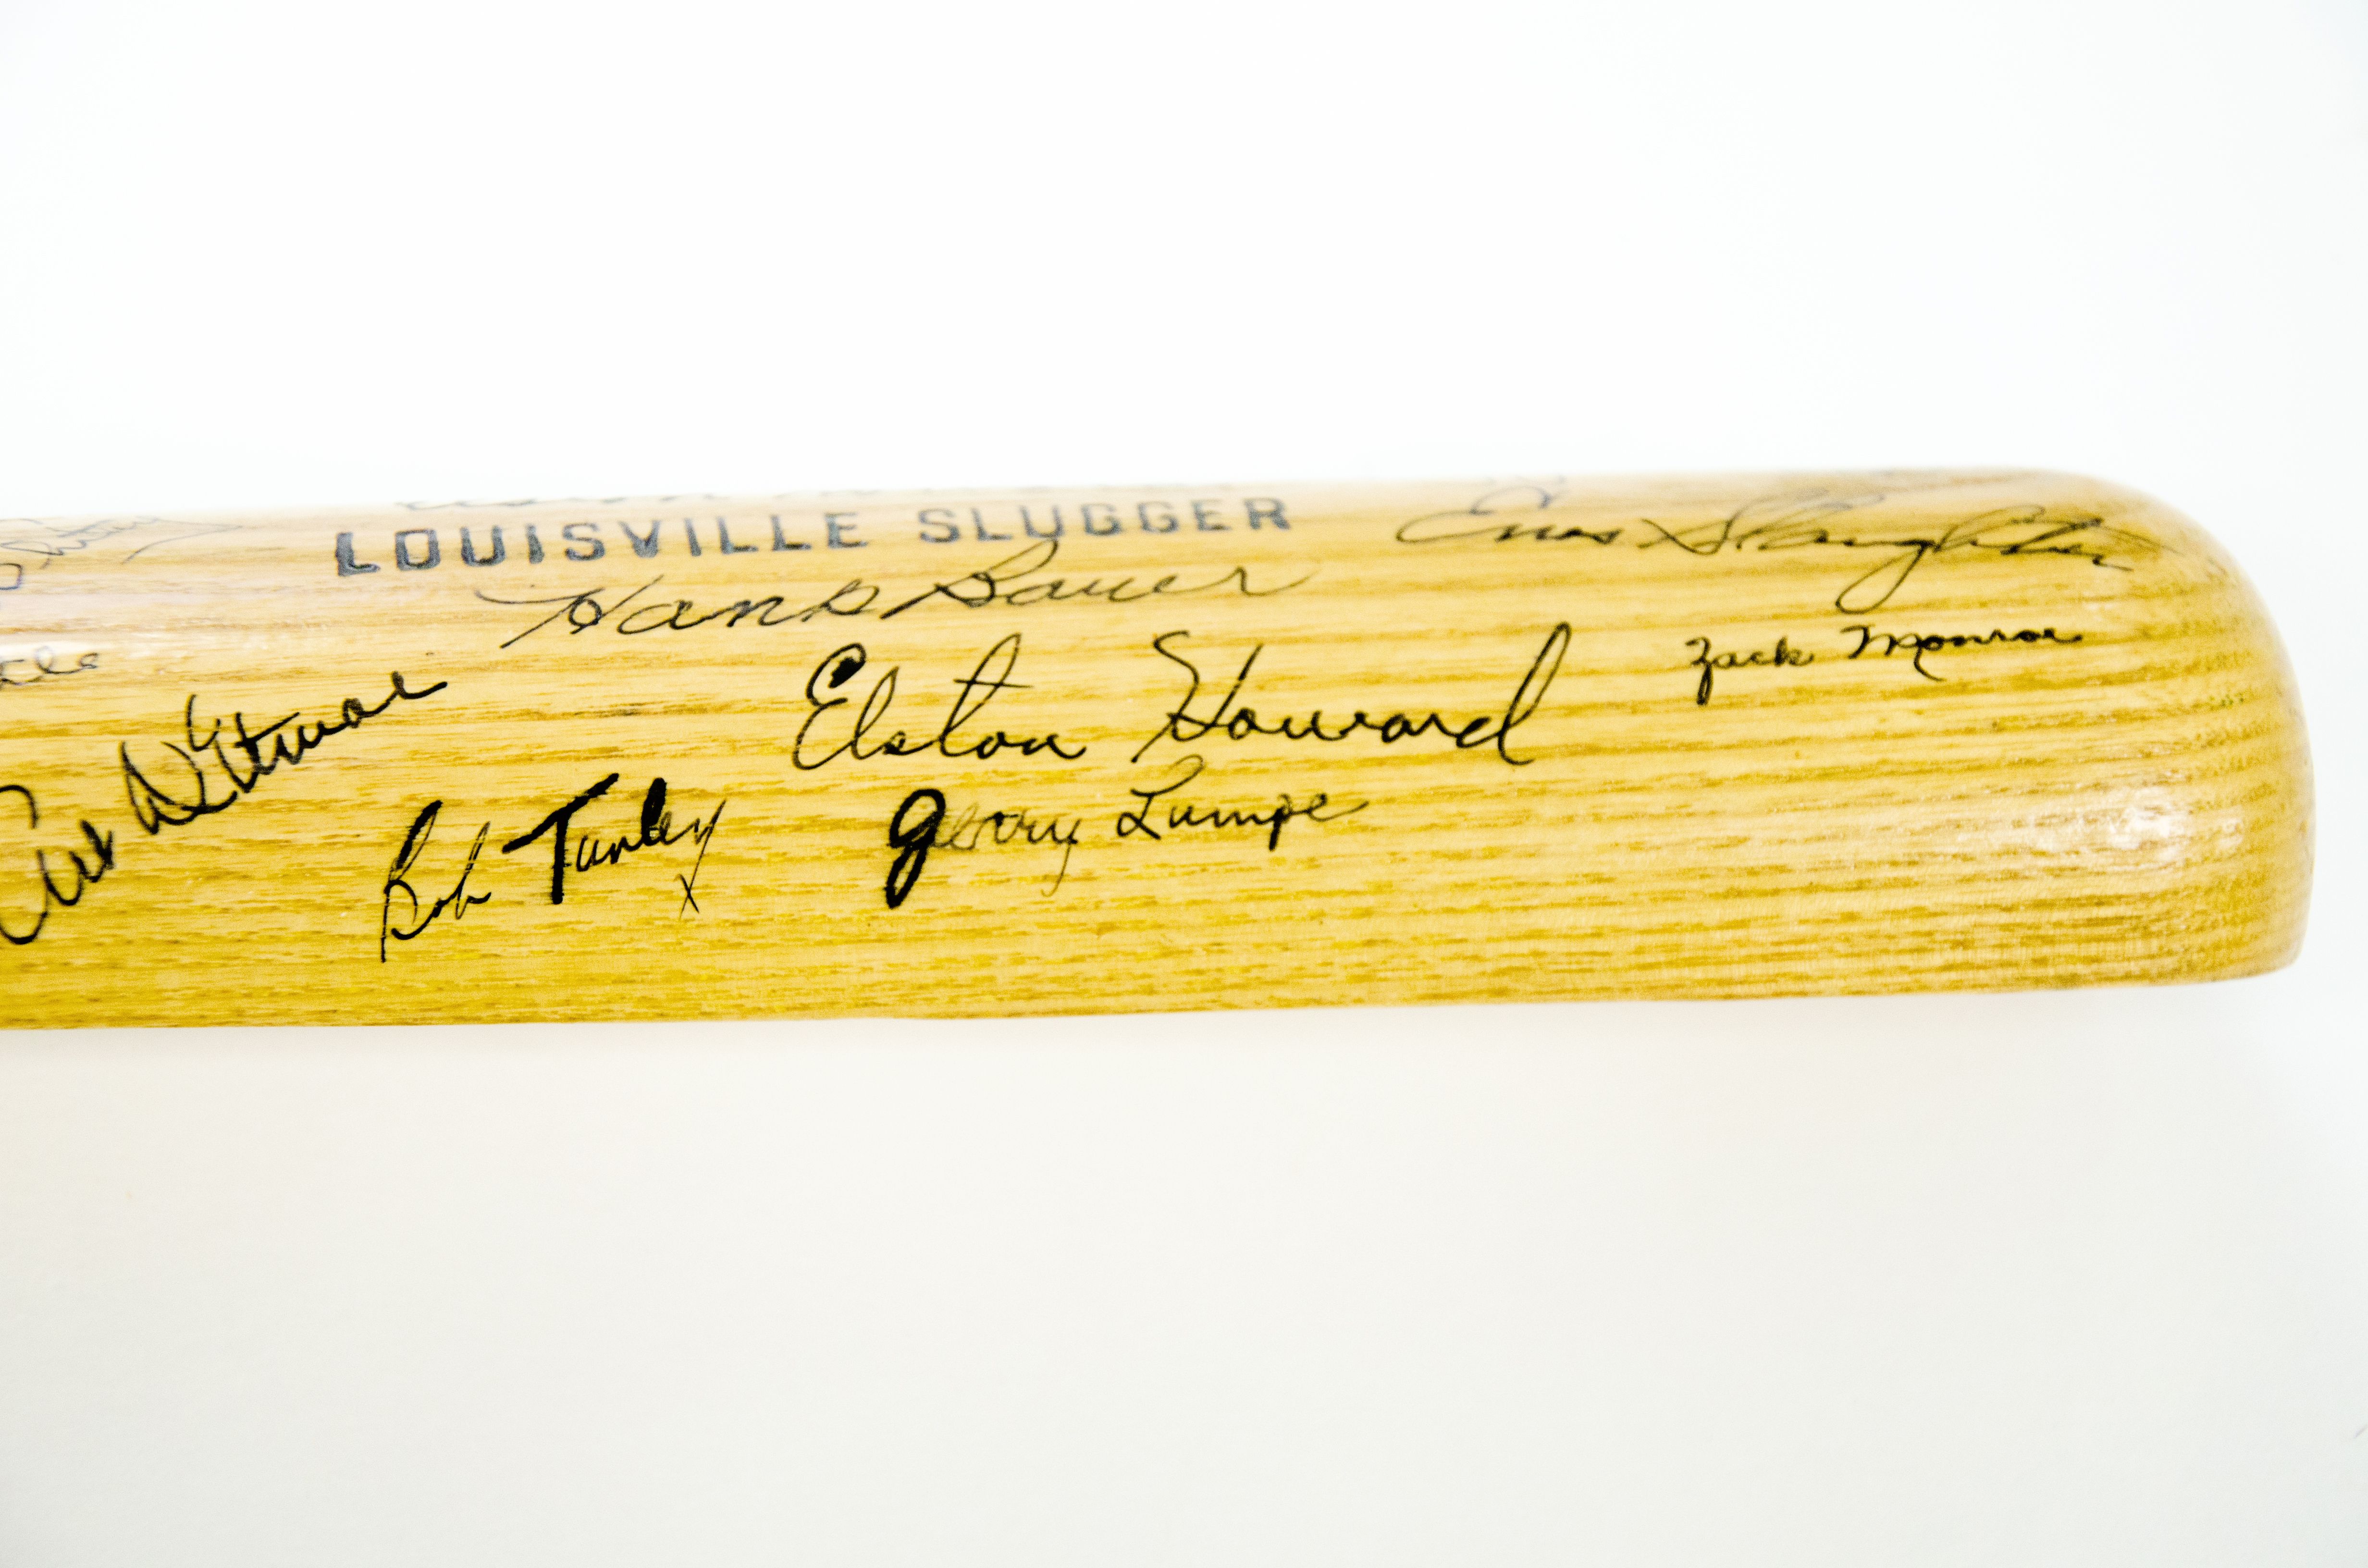 LOUISVILLE SLUGGER
Enos Slaughter
Hank Bauer
Zack Monroe
Elston Howard
Art Ditmar
Bob Turley
Jerry Lumpe